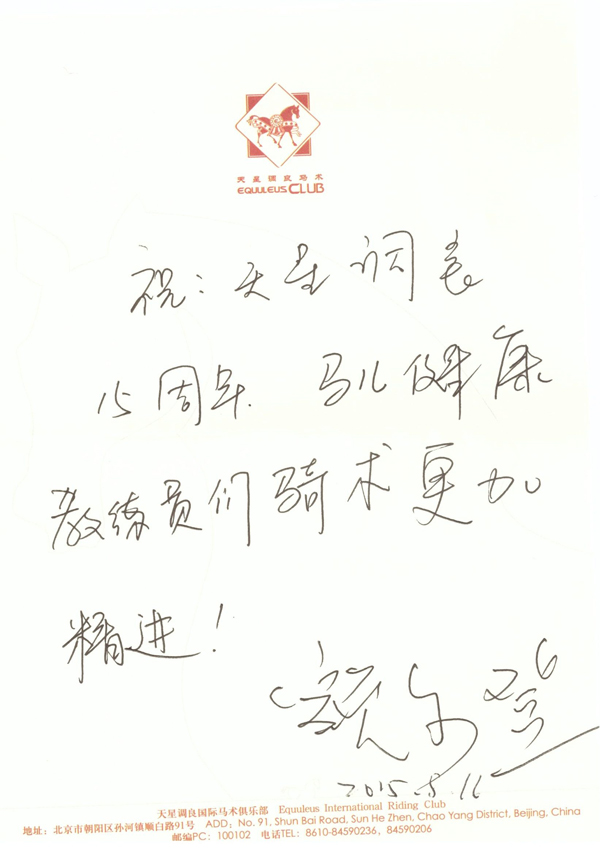 天星调良马术
EQUULEUS CLUB
祝：天星调良
15周年 马儿健康
教练员们骑术更加
精进！
2015.8.16
天星调良国际马术俱乐部 Equuleus International Riding Club
地址：北京市朝阳区孙河镇顺白路91号 ADD：No. 91, Shun Bai Road, Sun He Zhen, Chao Yang District, Beijing, China
邮编PC：100102 电话TEL：8610-84590236，84590206